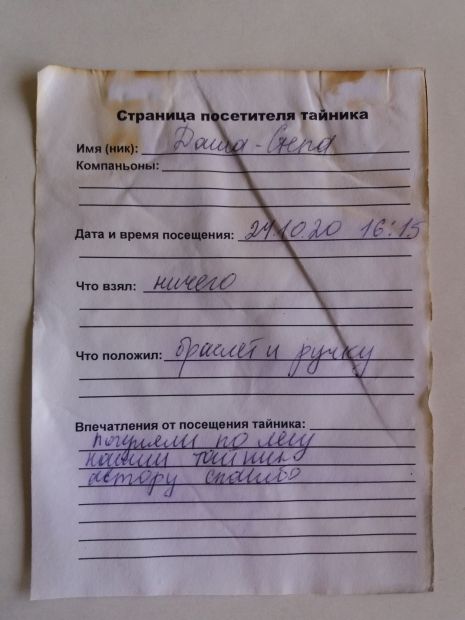 Страница посетителя тайника
Имя (ник): Даша - Степа
Компаньоны:
Дата и время посещения: 24.10.20 16:15
Что взял: ничего
Что положил: браслет и ручку
Впечатления от посещения тайника:
погуляли по лесу
нашли тайник
автору спасибо